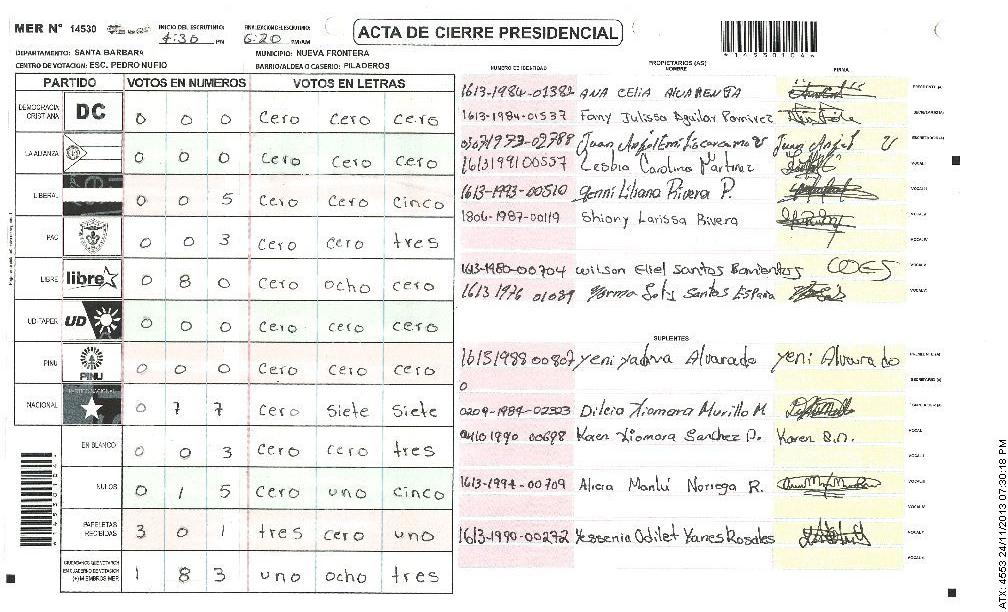 MER N° 14530
INICIO DEL ESCRUTINIO: 4:36 PM
FINALIZACION DEL ESCRUTINIO: 6:20 PM/AM
ACTA DE CIERRE PRESIDENCIAL
DEPARTAMENTO: SANTA BARBARA
MUNICIPIO: NUEVA FRONTERA
CENTRO DE VOTACION: ESC. PEDRO NUFIO
BARRIO/ALDEA O CASERIO: PILADEROS
PARTIDO VOTOS EN NUMEROS VOTOS EN LETRAS
DEMOCRACIA CRISTIANA DC 0 0 0 cero cero cero
LA ALIANZA 0 0 0 cero cero cero
LIBERAL 0 0 5 cero cero cinco
PAC 0 0 3 cero cero tres
LIBRE libre 0 8 0 cero ocho cero
UD-FAPER UD 0 0 0 cero cero cero
PINU PINU 0 0 0 cero cero cero
NACIONAL 0 7 7 cero siete siete
EN BLANCO 0 0 3 cero cero tres
NULOS 0 1 5 cero uno cinco
PAPELETAS RECIBIDAS 3 0 1 tres cero uno
CIUDADANOS QUE VOTARON EN CUADERNO DE VOTACION (+) MIEMBROS MER 1 8 3 uno ocho tres
NUMERO DE IDENTIDAD PROPIETARIOS (AS) NOMBRE FIRMA
1613-1984-01382 ANA CELIA ALVARENGA PRESIDENTE (A)
1613-1984-01537 Fany Julissa Aguilar Ramirez SECRETARIO (A)
Juan Angel Juan Angel
1613199100557 Lesbia Carolina Martinez VOCAL I
1613-1993-00510 Yenni Liliana Rivera P. VOCAL II
1804-1987-00119 Shiony Larissa Rivera
1613-1980-00704 Wilson Eliel Santos Barrientos
1613 1976 01089 Norma Soty Santos España
SUPLENTES
1613 1988 00807 Yeni Yadira Alvarado Yeni Alvarado PRESIDENTE (A)
0
SECRETARIO (A)
0209-1984-02323 Dilcia Xiomara Murillo M
1990 00698 Karen Xiomara Sanchez P. Karen
1613-1994-00709 Alicia Noriega R.
1613-1990-00272 Yessenia Odilet Yanes Rosales
ATX: 4553 24/11/2013 07:30:18 PM